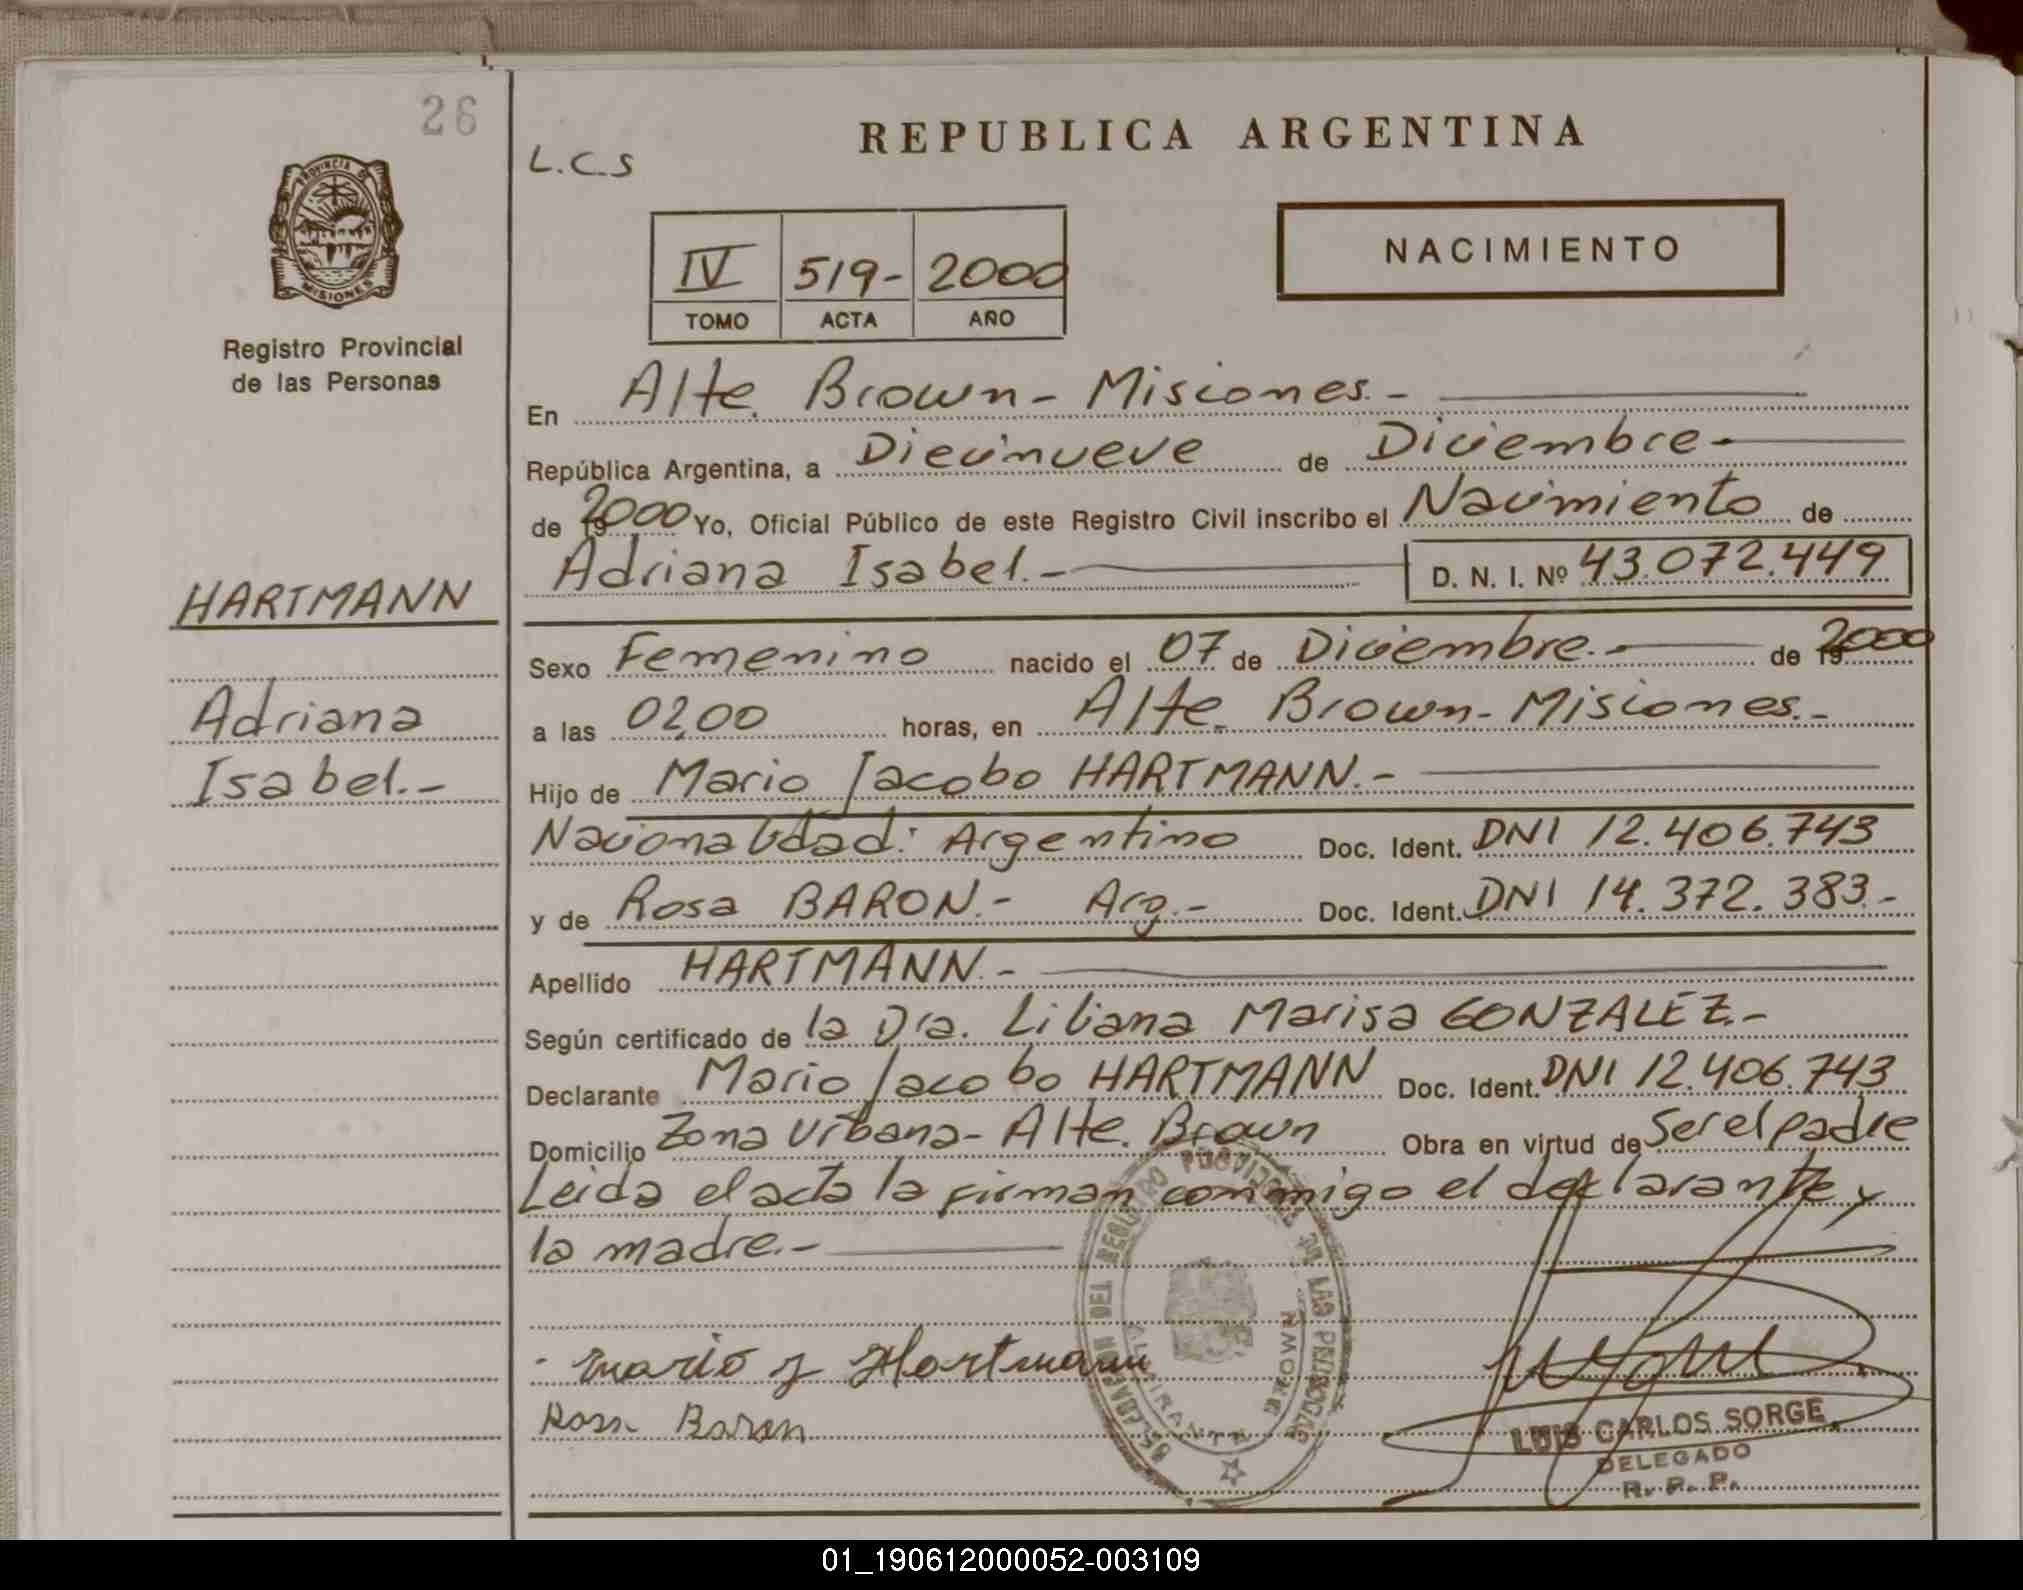 26
PROVINCIA DE
MISIONES
Registro Provincial
de las Personas
HARTMANN
Adriana
Isabel.-
L.C.S
REPUBLICA ARGENTINA
IV 519- 2000
TOMO ACTA AÑO
NACIMIENTO
En Alte. Brown - Misiones.-
República Argentina, a Diecinueve de Diciembre-
de 192000 Yo, Oficial Público de este Registro Civil inscribo el Nacimiento de
Adriana Isabel.- D. N. I. Nº 43.072.449
Sexo Femenino nacido el 07 de Diciembre.- de 192000
a las 02,00 horas, en Alte. Brown - Misiones.-
Hijo de Mario Jacobo HARTMANN.-
Nacionalidad: Argentino Doc. Ident. DNI 12.406.743
y de Rosa BARON.- Arg.- Doc. Ident. DNI 14.372.383.-
Apellido HARTMANN.-
Según certificado de la Dra. Liliana Marisa GONZALEZ.-
Declarante Mario Jacobo HARTMANN Doc. Ident. DNI 12.406.743
Domicilio Zona Urbana - Alte. Brown Obra en virtud de Ser el padre
Leida el acta la firman conmigo el declarante y
la madre.-
DELEGACION DEL REGISTRO PROVINCIAL DE LAS PERSONAS
ALMIRANTE BROWN
Mario J Hartmann
Rosa Baron
LUIS CARLOS SORGE
DELEGADO
R. P. P.
01_190612000052-003109